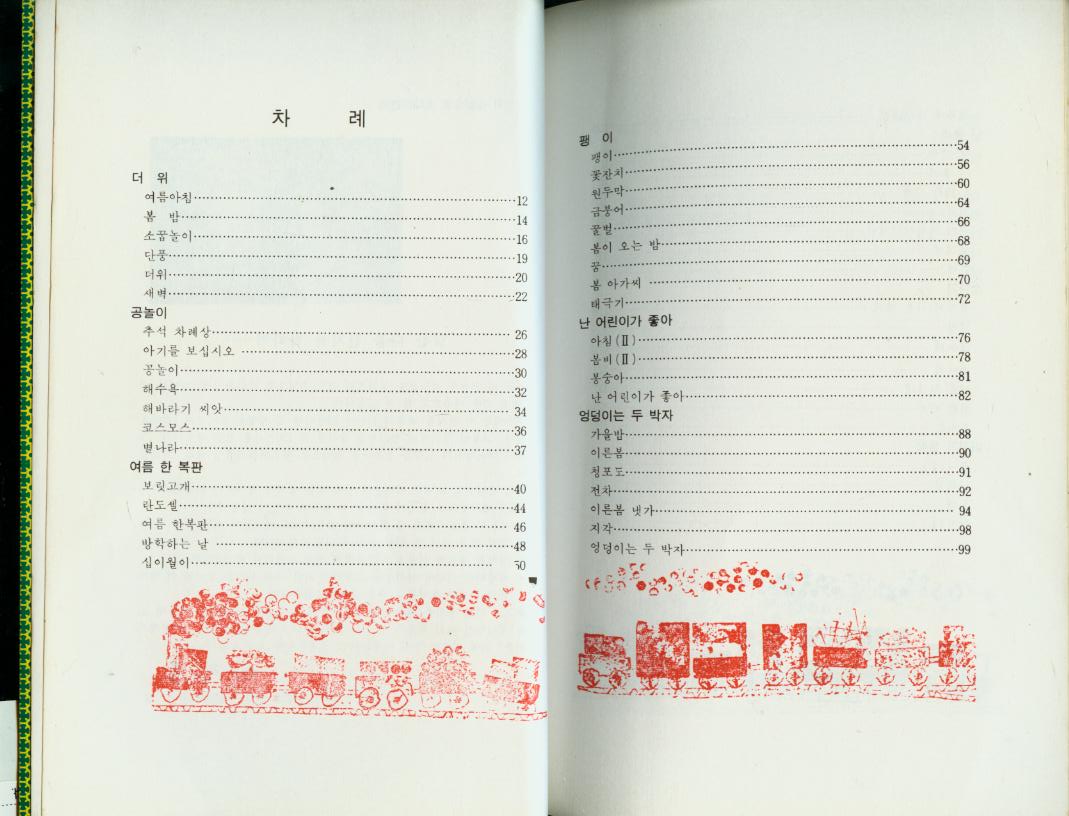 차 례
더 위
여름아침 12
봄 밤 14
소꿉놀이 16
단풍 19
더위 20
새벽 22
공놀이
추석 차례상 26
아기를 보십시오 28
공놀이 30
해수욕 32
해바라기 씨앗 34
코스모스 36
별나라 37
여름 한 복판
보릿고개 40
란도셀 44
여름 한복판 46
방학하는 날 48
십이월이 50
팽 이
팽이 54
꽃잔치 56
원두막 60
금붕어 64
꿀벌 66
봄이 오는 밤 68
꿈 69
봄 아가씨 70
태극기 72
난 어린이가 좋아
아침(Ⅱ) 76
봄비(Ⅱ) 78
봉숭아 81
난 어린이가 좋아 82
엉덩이는 두 박자
가을밤 88
이른봄 90
청포도 91
전차 92
이른봄 냇가 94
지각 98
엉덩이는 두 박자 99